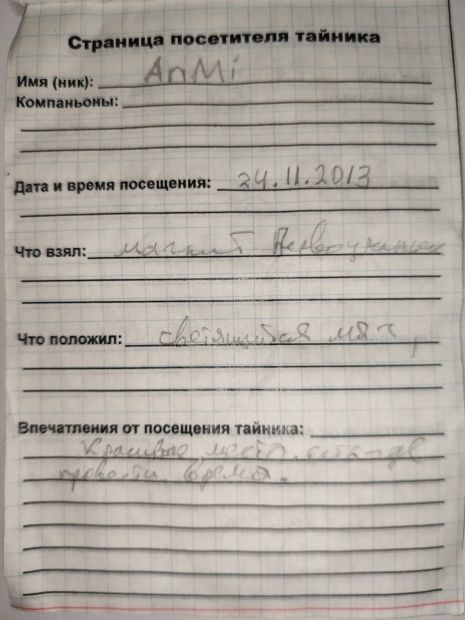 Страница посетителя тайника
Имя (ник): AnMi
Компаньоны:
Дата и время посещения: 24.11.2013
Что взял: магнит Первоуральск
Что положил: светящийся мяч,
Впечатления от посещения тайника:
Красивое место. есть где
провести время.